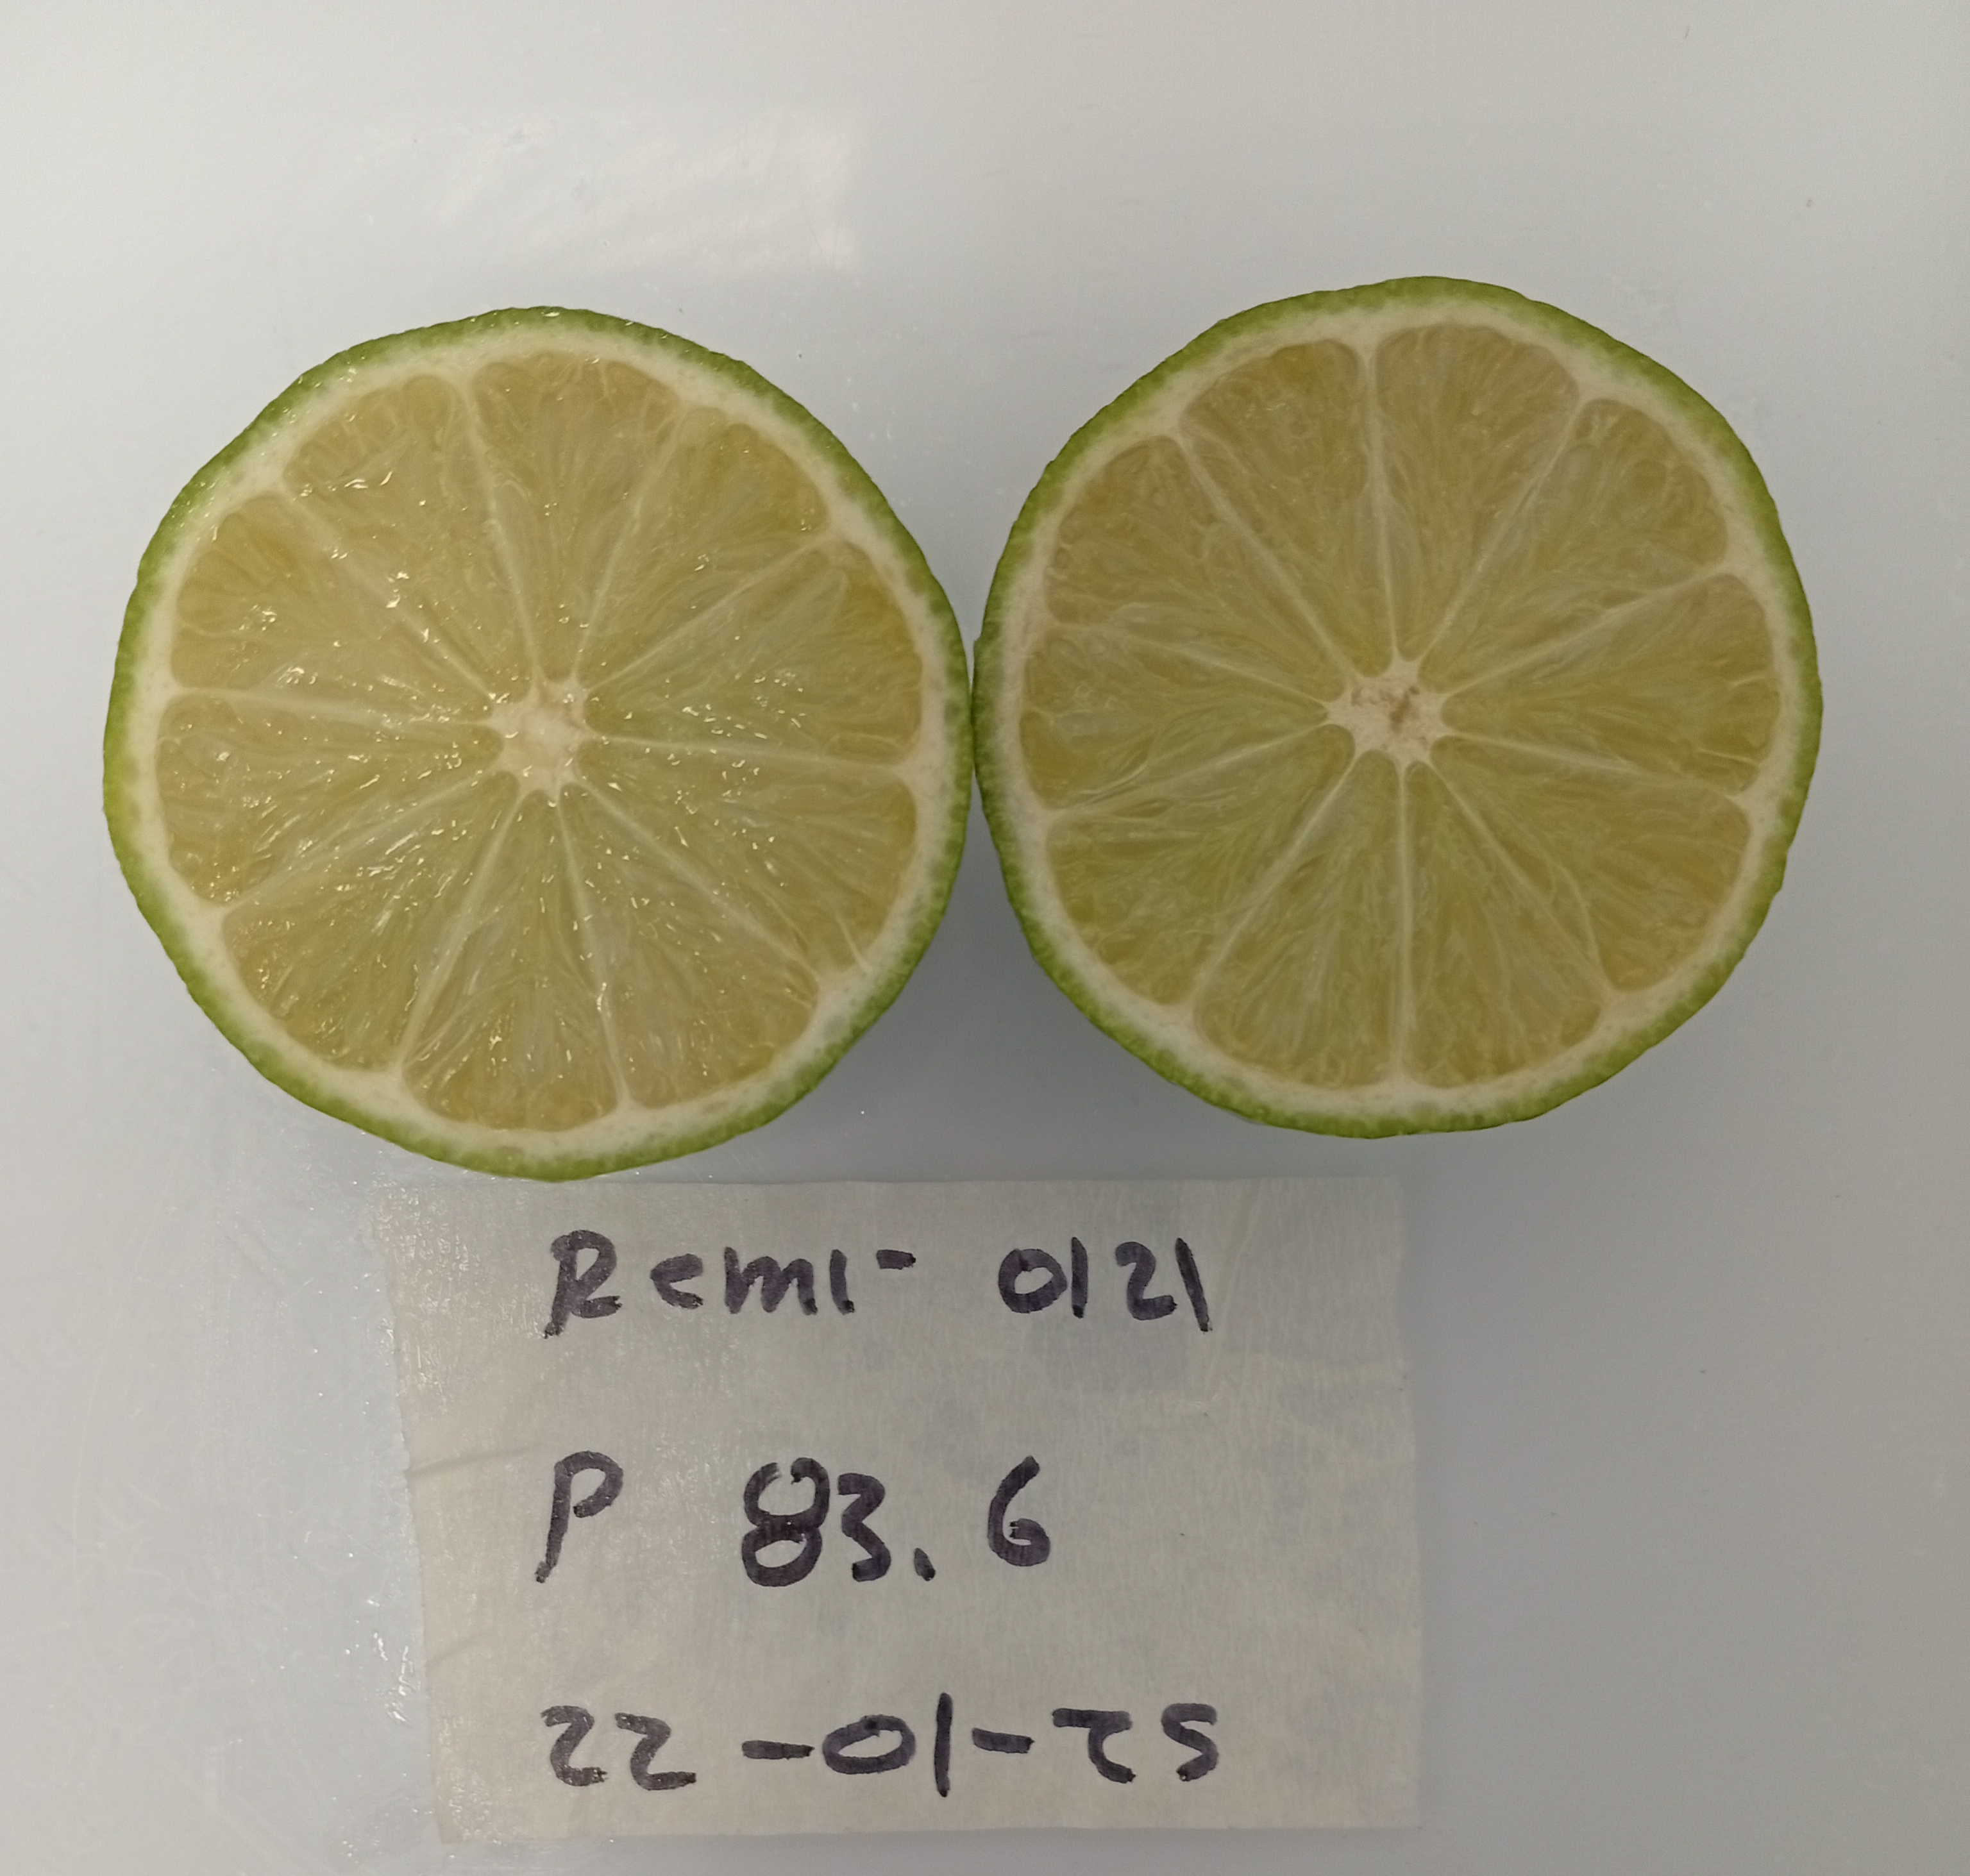 Remi- 0121
P 83.6
22-01-25